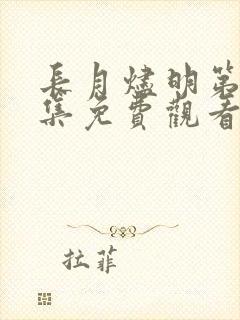 長月燼明第
集免費觀看
拉菲